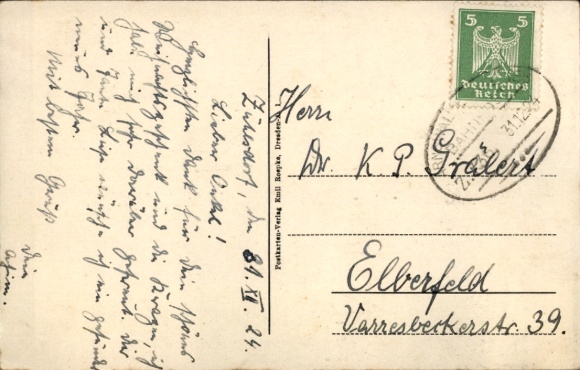 Zühlsdorf, den 31. XII. 24.
Lieber Onkel!
Herzlichsten Dank für Dein schönes
Weihnachtsgeschenk und die Kragen, ich
habe mich sehr darüber gefreut. Dir
und Tante wünsche ich ein gesundes
neues Jahr.
Mit bestem Gruß
Dein
Achim.
Postkarten-Verlag Emil Roepke, Dresden-A. 1
5 5
Deutsches
Reich
31.12.
Herrn
Dr. K P. Grälert
Elberfeld
Varresbeckerstr. 39.